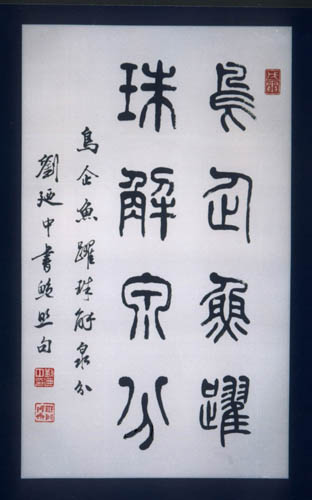 鳥企魚躍
珠解泉分
鳥企魚躍珠解泉分
劉延中書鮑照句